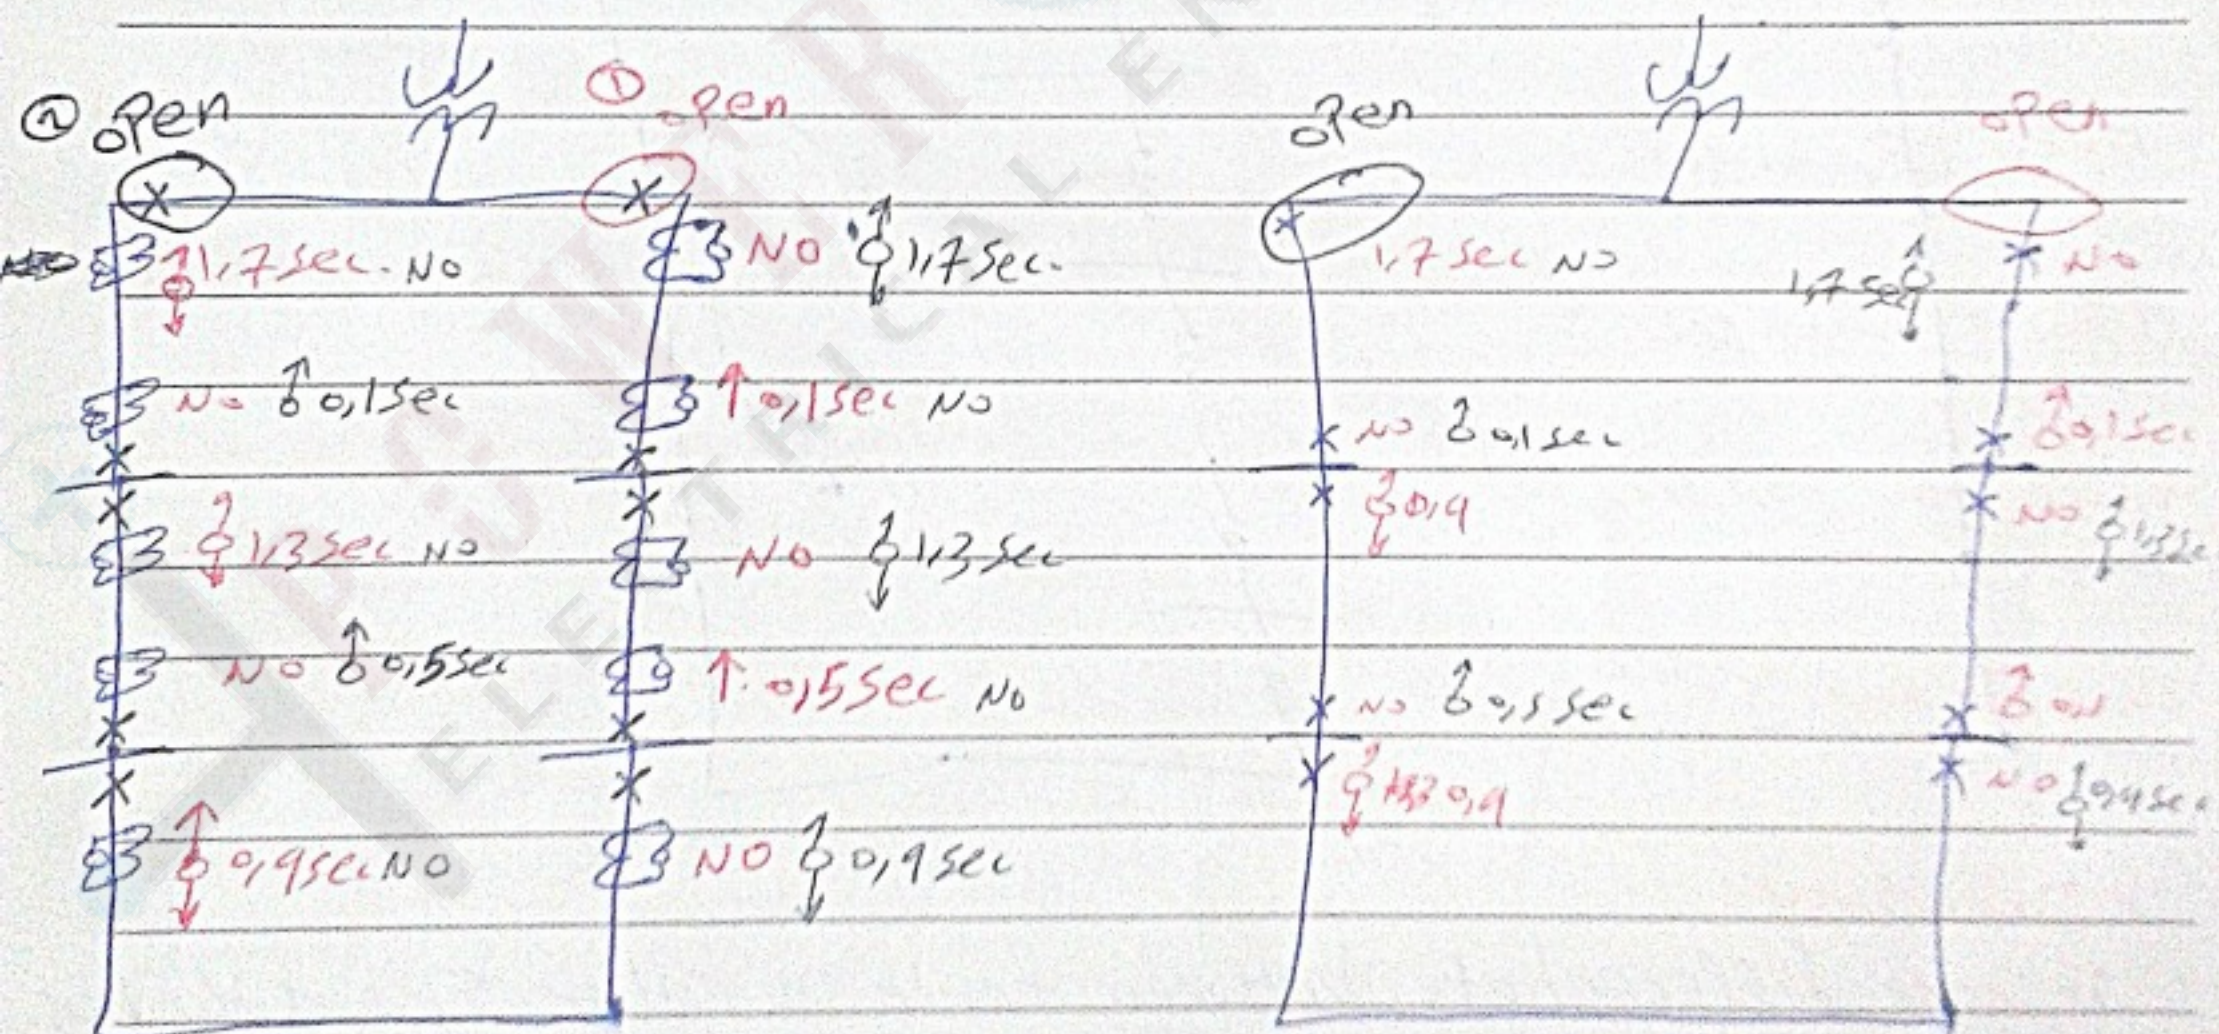 ② open ① open open open
1,7 sec. NO NO 1,7 sec. 1,7 sec NO 1,7 sec NO
NO 0,1 sec 0,1 sec NO NO 0,1 sec 0,1 sec
0,9
1,3 sec NO NO 1,3 sec NO 1,3 sec
NO 0,5 sec 0,5 sec NO NO sec
0,9 sec NO NO 0,9 sec 0,9 NO 0,9 sec